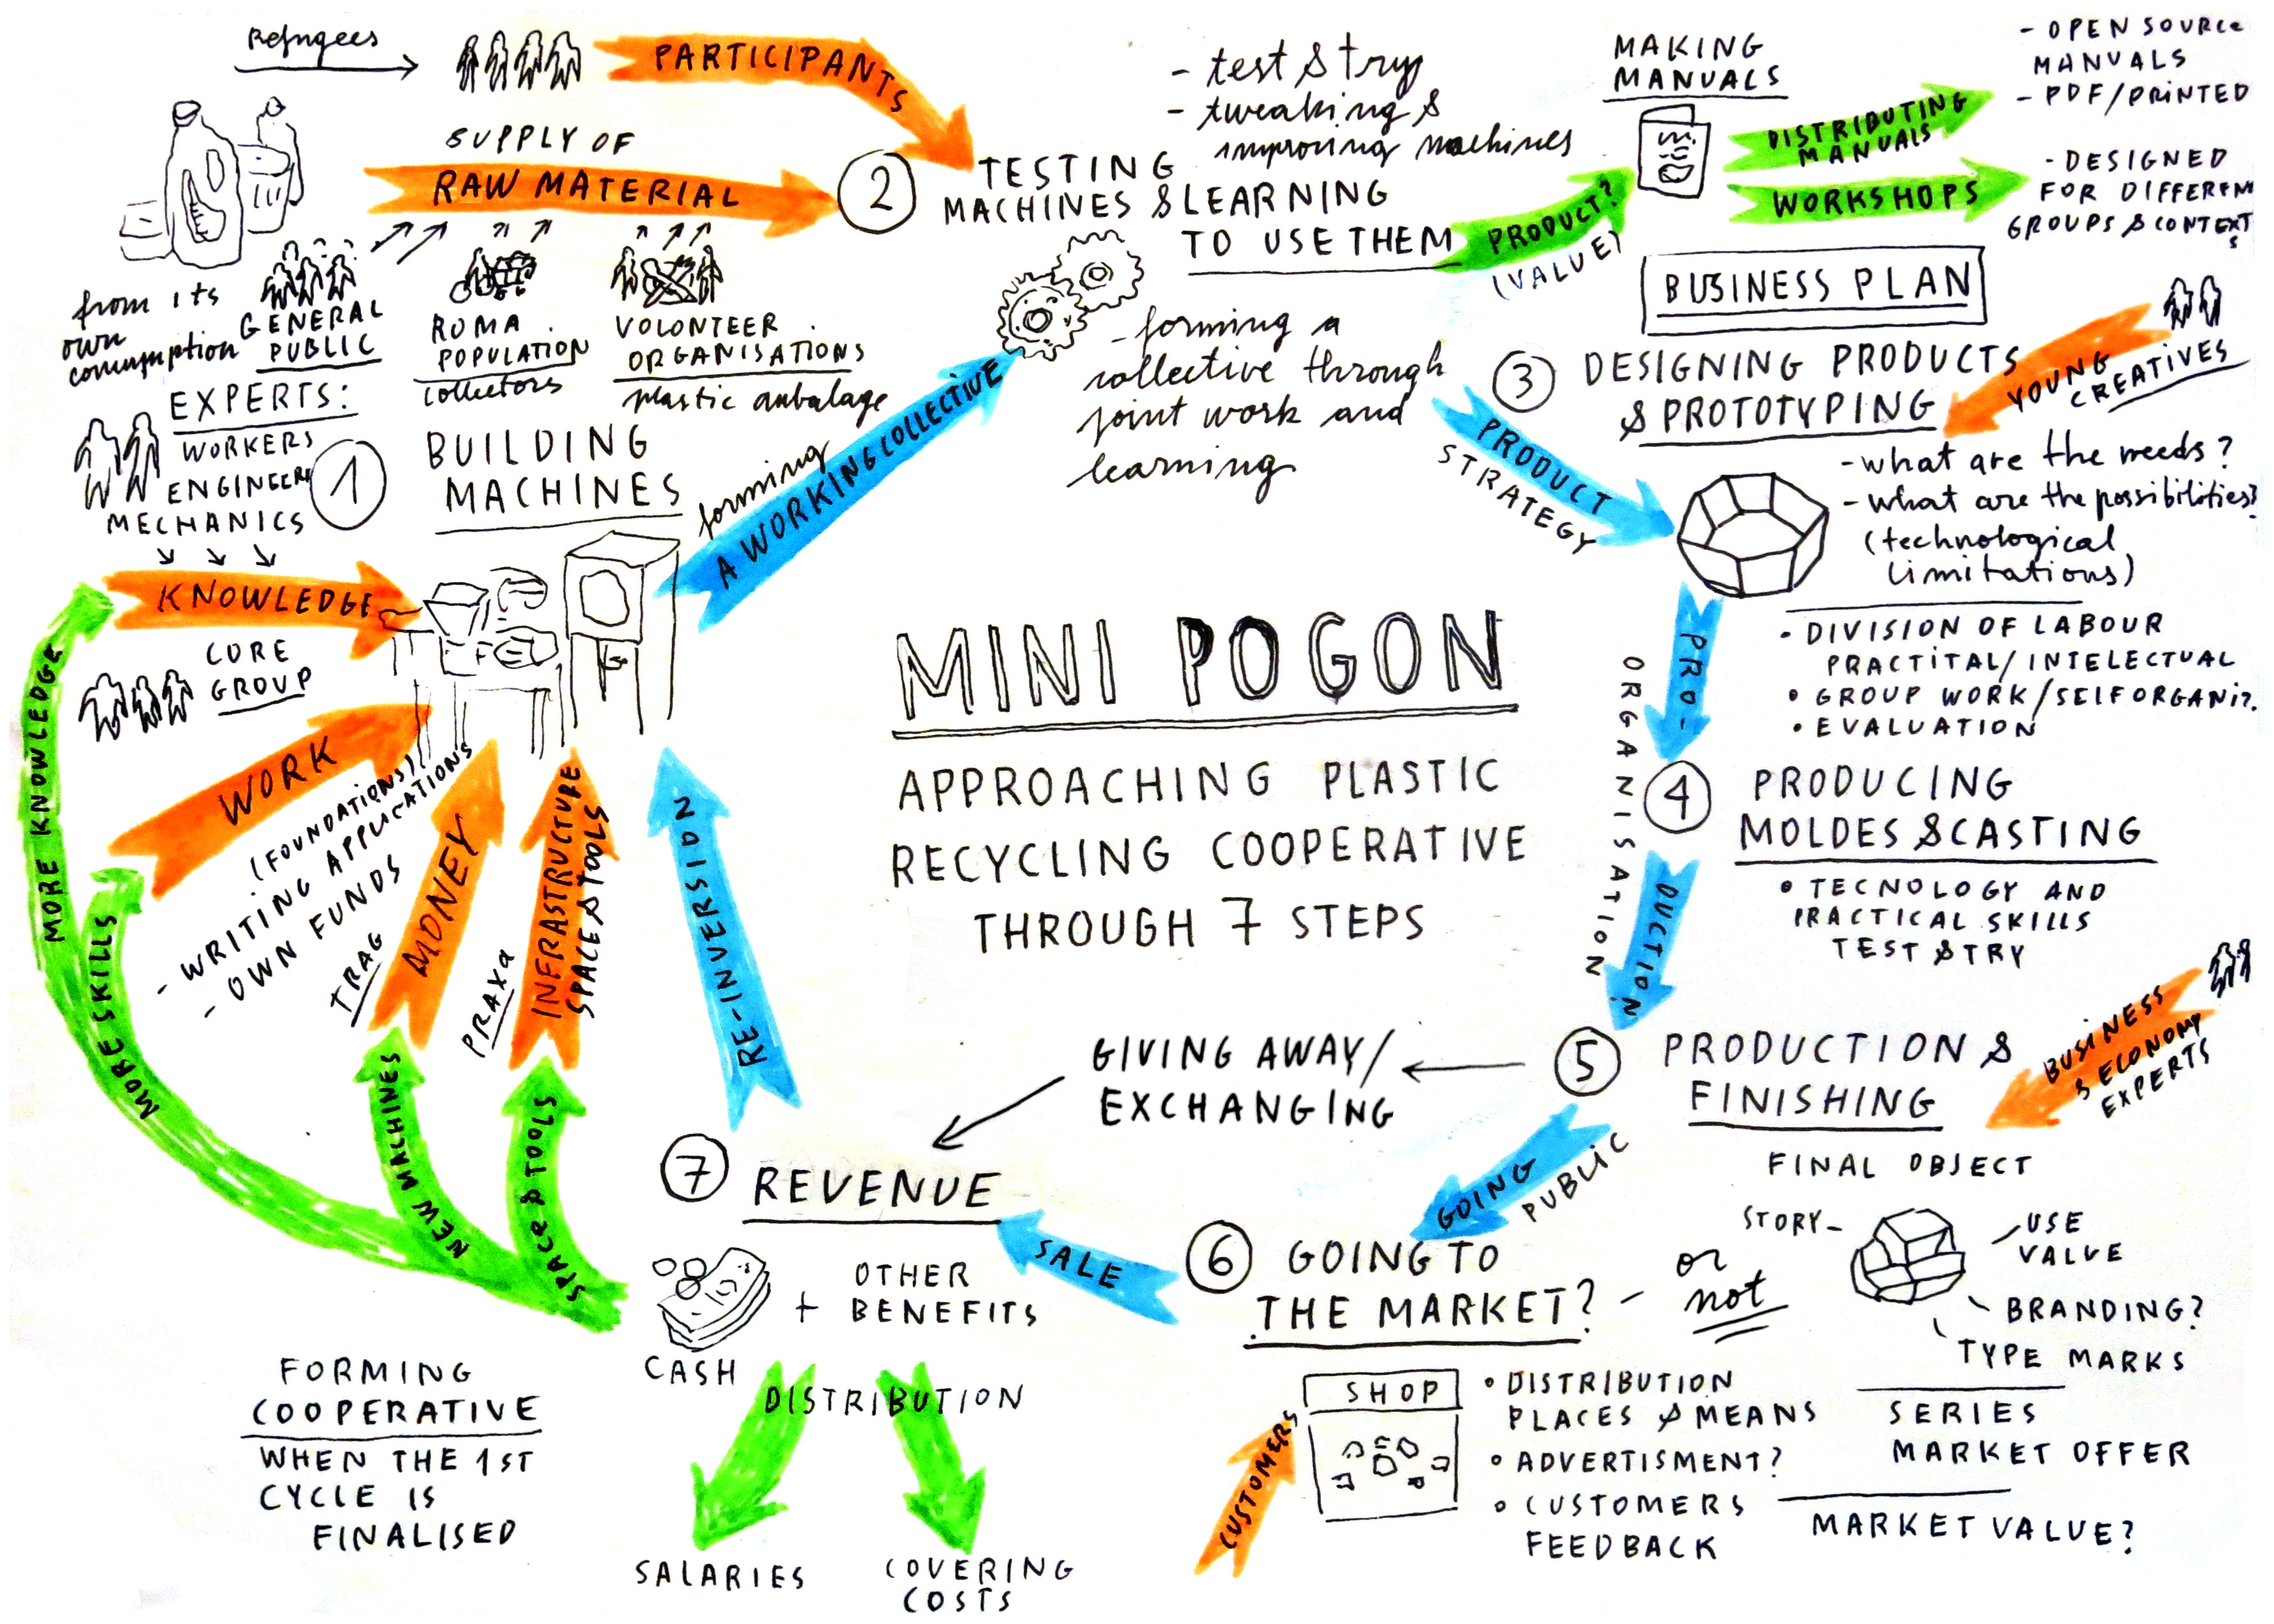 Refugees
PARTICIPANTS
SUPPLY OF
RAW MATERIAL
from its
own
GENERAL
PUBLIC
ROMA
POPULATION
collectors
VOLUNTEER
ORGANISATIONS
plastic anbalage
EXPERTS:
WORKERS
ENGINEER
MECHANICS
1
BUILDING
MACHINES
KNOWLEDGE
CORE
GROUP
WORK
(FOUNDATIONS)
- WRITING APPLICATIONS
- OWN FUNDS
TRAG
MONEY
PRAXA
INFRASTRUCTURE
SPACE & TOOLS
MORE KNOWLEDGE
MORE SKILLS
NEW MACHINES
SPACE & TOOLS
forming
A WORKING COLLECTIVE
2
TESTING
MACHINES & LEARNING
TO USE THEM
- test & try
- tweaking &
improving machines
- forming a
collective through
joint work and
learning
PRODUCT?
(VALUE)
MAKING
MANUALS
DISTRIBUTING
MANUALS
- OPEN SOURCE
MANUALS
- PDF/PRINTED
WORKSHOPS
- DESIGNED
FOR DIFFEREN
GROUPS & CONTEXT
S
BUSINESS PLAN
PRODUCT
STRATEGY
3
DESIGNING PRODUCTS
& PROTOTYPING
YOUNG
CREATIVES
- what are the needs?
- what are the possibilities?
(technological
limitations)
• DIVISION OF LABOUR
PRACTITAL/INTELECTUAL
• GROUP WORK/SELFORGANIZ.
• EVALUATION
PRO-
DUCTION
ORGANISATION
4
PRODUCING
MOLDES & CASTING
• TECNOLOGY AND
PRACTICAL SKILLS
TEST & TRY
MINI POGON
APPROACHING PLASTIC
RECYCLING COOPERATIVE
THROUGH 7 STEPS
5
PRODUCTION &
FINISHING
BUSINESS
& ECONOMY
EXPERTS
GIVING AWAY/
EXCHANGING
FINAL OBJECT
STORY-
USE
VALUE
BRANDING?
TYPE MARKS
SERIES
MARKET OFFER
MARKET VALUE?
GOING
PUBLIC
6
GOING TO
THE MARKET?
- or
not
SHOP
CUSTOMERS
• DISTRIBUTION
PLACES & MEANS
• ADVERTISMENT?
• CUSTOMERS
FEEDBACK
SALE
7
REVENUE
RE-INVERSION
CASH
+ OTHER
BENEFITS
DISTRIBUTION
SALARIES
COVERING
COSTS
FORMING
COOPERATIVE
WHEN THE 1ST
CYCLE IS
FINALISED